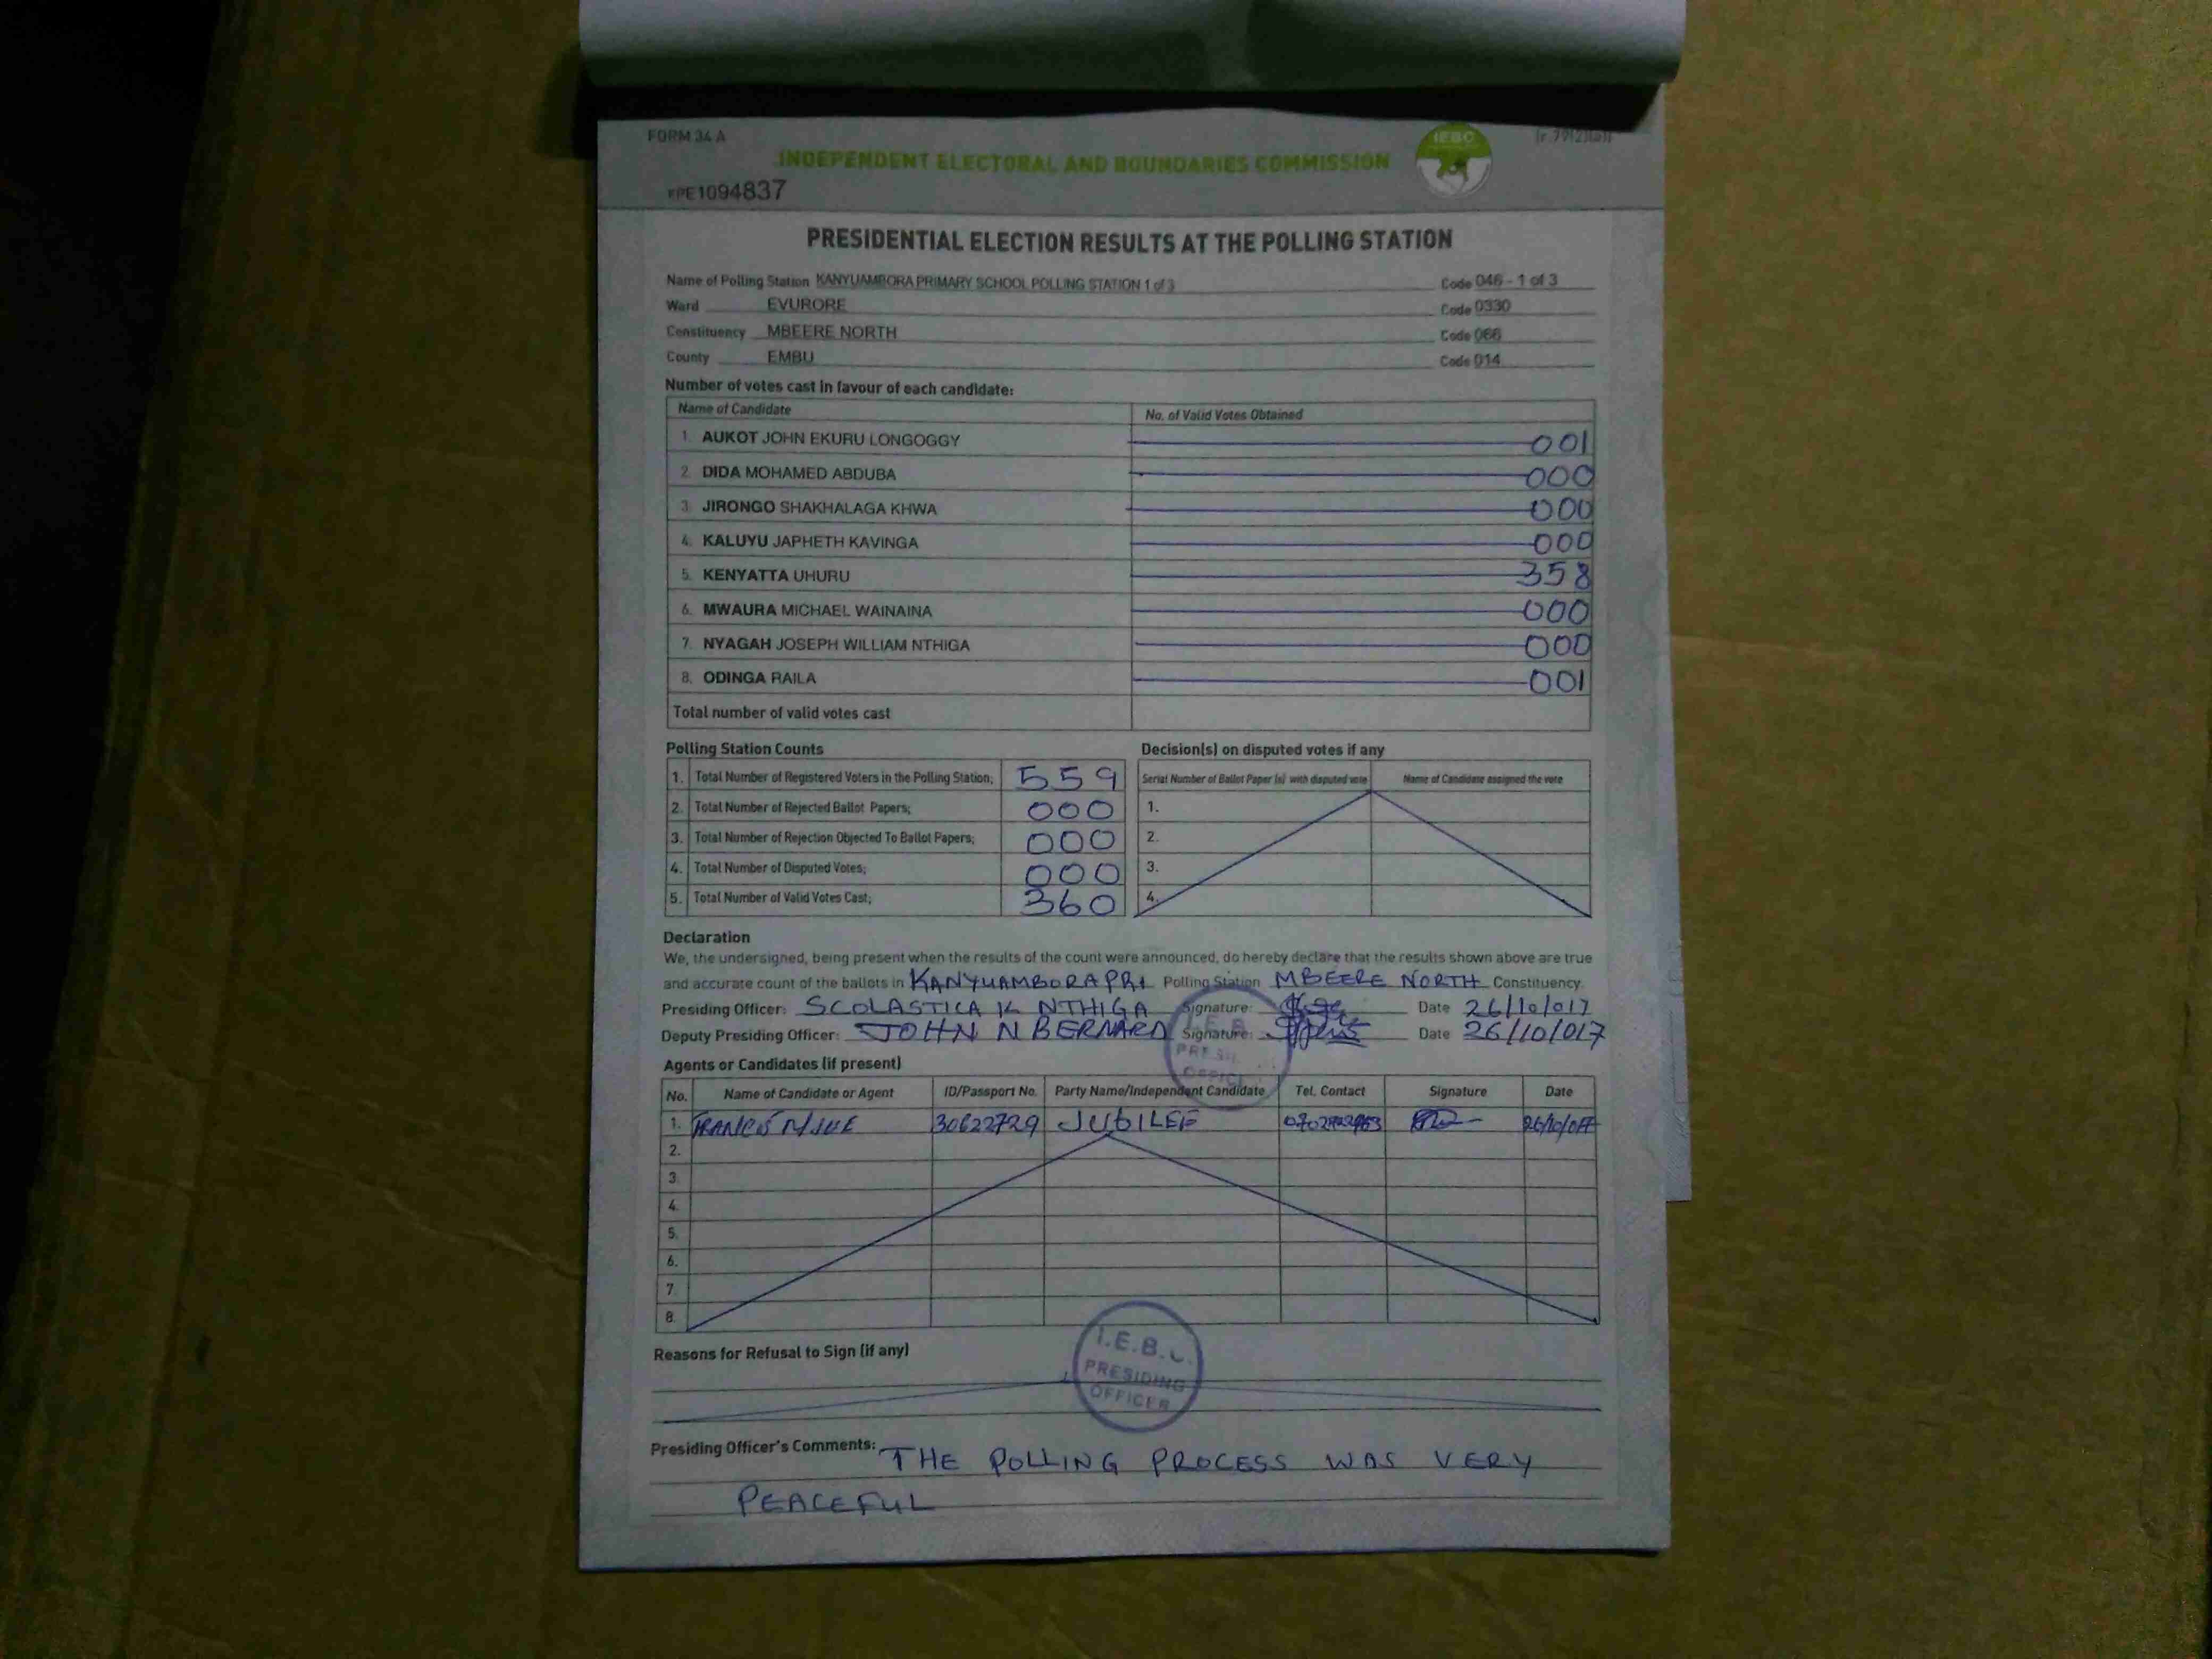 FORM 34 A
IEBC
INDEPENDENT ELECTORAL AND BOUNDARIES COMMISSION
KPE1094837
PRESIDENTIAL ELECTION RESULTS AT THE POLLING STATION
Name of Polling Station KANYUAMBORA PRIMARY SCHOOL POLLING STATION 1 of 3 Code 046 - 1 of 3
Ward EVURORE Code 0330
Constituency MBEERE NORTH Code 066
County EMBU Code 014
Number of votes cast in favour of each candidate:
Name of Candidate No. of Valid Votes Obtained
1. AUKOT JOHN EKURU LONGOGGY 001
2. DIDA MOHAMED ABDUBA 000
3. JIRONGO SHAKHALAGA KHWA 000
4. KALUYU JAPHETH KAVINGA 000
5. KENYATTA UHURU 358
6. MWAURA MICHAEL WAINAINA 000
7. NYAGAH JOSEPH WILLIAM NTHIGA 000
8. ODINGA RAILA 001
Total number of valid votes cast
Polling Station Counts Decision(s) on disputed votes if any
Serial Number of Ballot Paper (s) with disputed vote Name of Candidate assigned the vote
1. Total Number of Registered Voters in the Polling Station; 559
2. Total Number of Rejected Ballot Papers; 000 1.
3. Total Number of Rejection Objected To Ballot Papers; 000 2.
4. Total Number of Disputed Votes; 000 3.
5. Total Number of Valid Votes Cast; 360 4.
Declaration
We, the undersigned, being present when the results of the count were announced, do hereby declare that the results shown above are true
and accurate count of the ballots in KANYUAMBORA PRI Polling Station MBEERE NORTH Constituency
Presiding Officer: SCOLASTICA K NTHIGA Signature: Date 26/10/017
Deputy Presiding Officer: JOHN N BERNARD Signature: Date 26/10/017
Agents or Candidates (if present)
No. Name of Candidate or Agent ID/Passport No. Party Name/Independent Candidate Tel. Contact Signature Date
1. FRANCIS 30622729 JUBILEE
2.
3.
4.
5.
6.
7.
8.
Reasons for Refusal to Sign (if any)
I.E.B.C.
PRESIDING
OFFICER
Presiding Officer's Comments: THE POLLING PROCESS WAS VERY
PEACEFUL